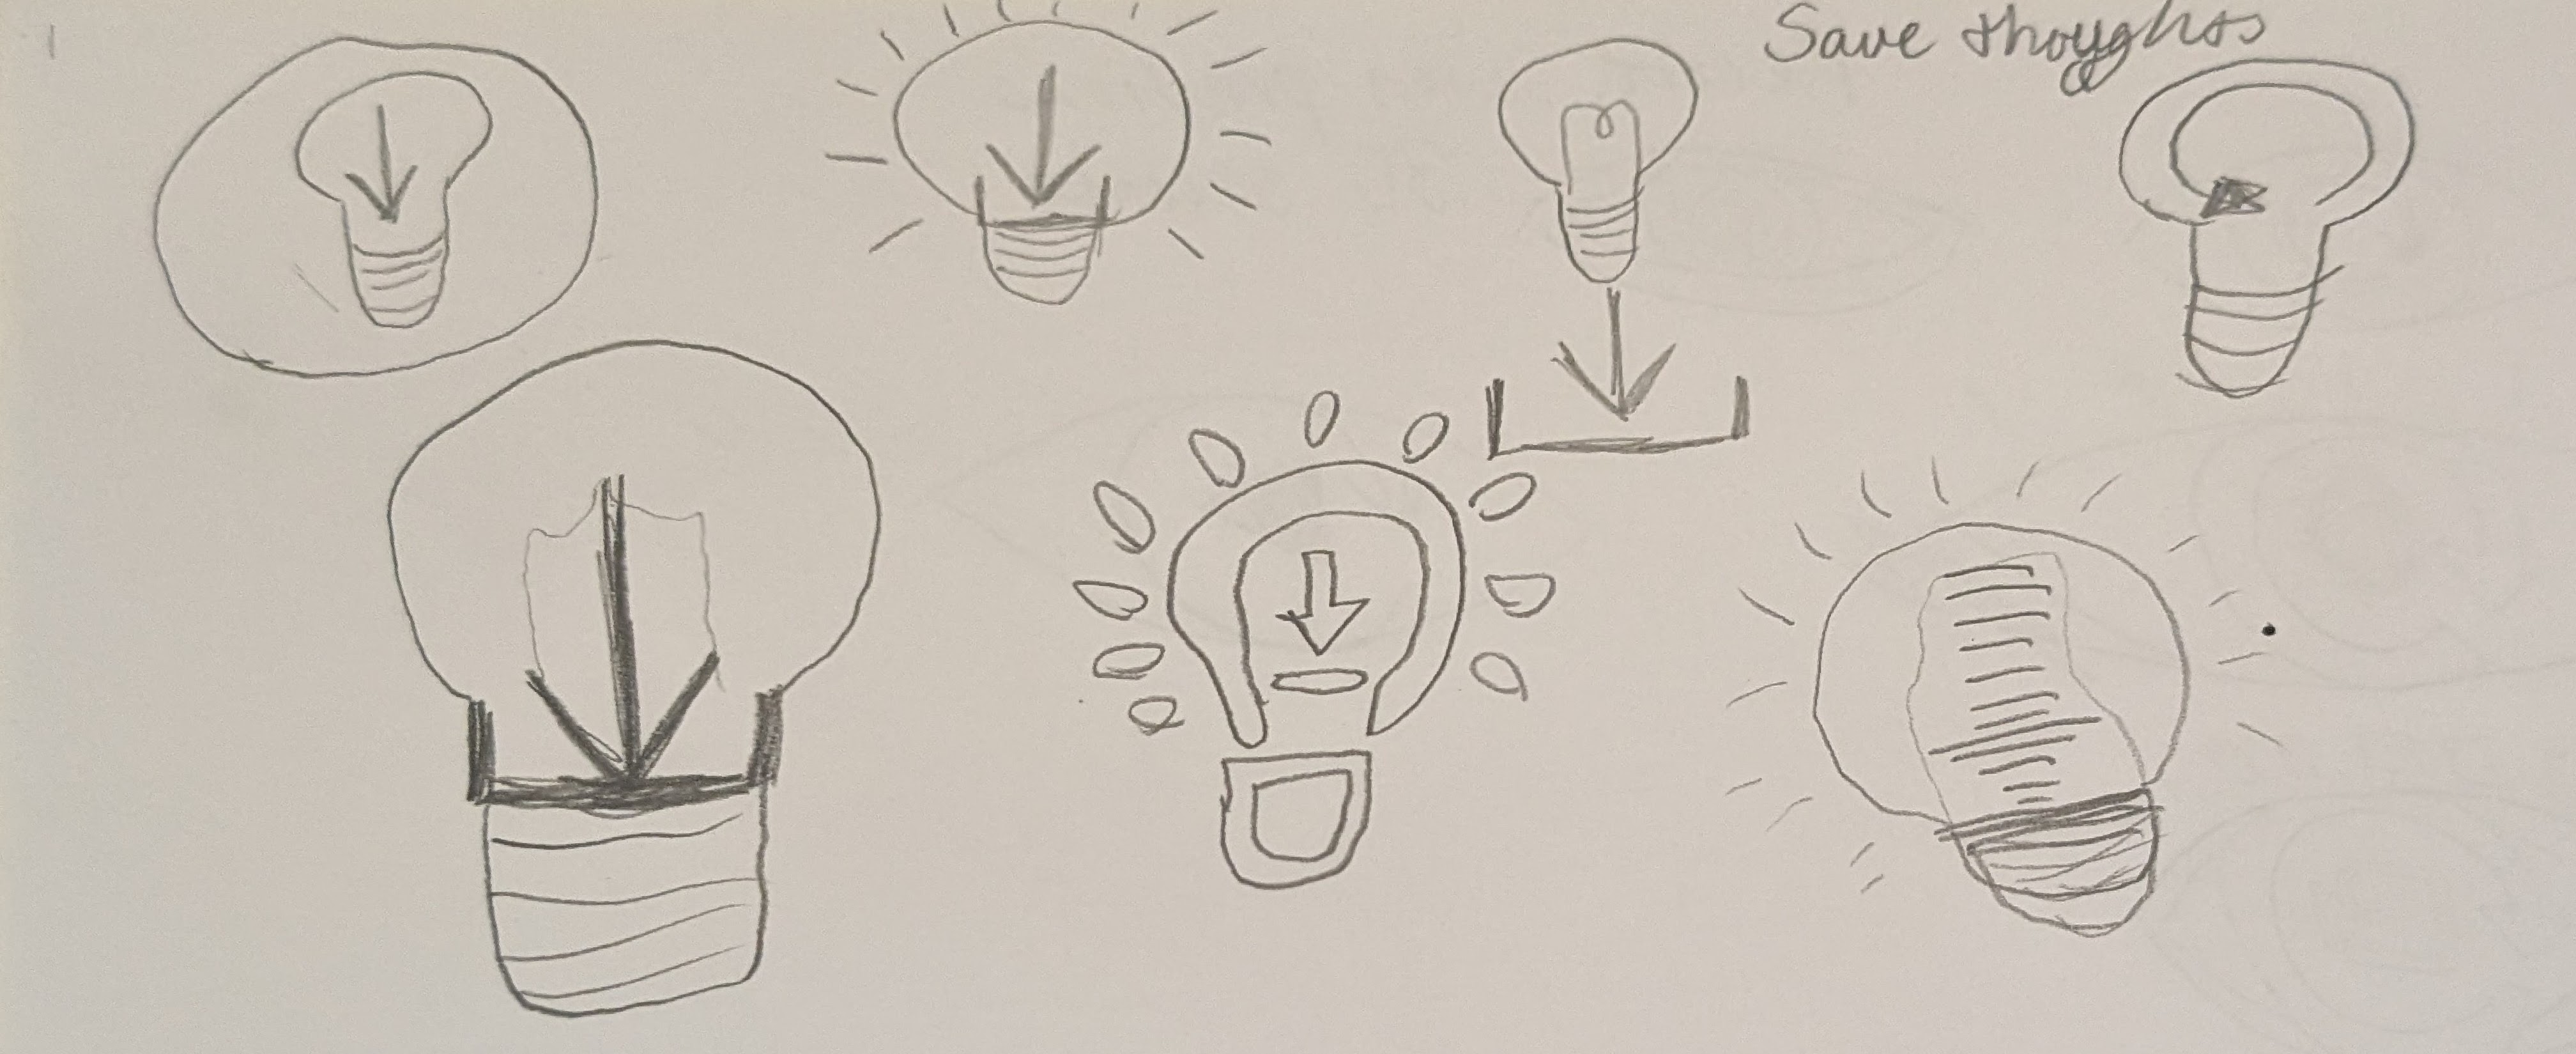 Save thoughts